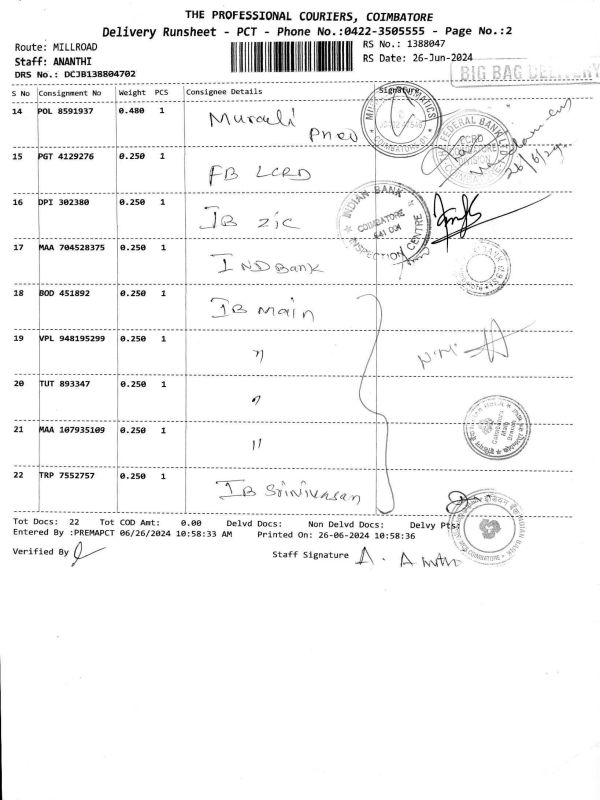 THE PROFESSIONAL COURIERS, COIMBATORE
Delivery Runsheet - PCT - Phone No.:0422-3505555 - Page No.:2
Route: MILLROAD
RS No.: 1388047
Staff: ANANTHI
RS Date: 26-Jun-2024
DRS No.: DCJB138804702
BIG BAG DELIVERY
S No Consignment No Weight PCS Consignee Details Signature
14 POL 8591937 0.480 1 Murali Pneu
15 PGT 4129276 0.250 1 FB LCRD
FEDERAL BANK LTD
26/6/24
16 DPI 302380 0.250 1 IB ZIC
INDIAN BANK
COIMBATORE
641 001
INSPECTION CENTRE
17 MAA 704528375 0.250 1 IND Bank
18 BOD 451892 0.250 1 IB Main
19 VPL 948195299 0.250 1 "
N.M.
20 TUT 893347 0.250 1 "
21 MAA 107935109 0.250 1 "
Coimbatore
Main
Branch
22 TRP 7552757 0.250 1 IB Srinivasan
INDIAN BANK
COIMBATORE
Tot Docs: 22 Tot COD Amt: 0.00 Delvd Docs: Non Delvd Docs: Delvy Pts:
Entered By :PREMAPCT 06/26/2024 10:58:33 AM Printed On: 26-06-2024 10:58:36
Verified By
Staff Signature A.